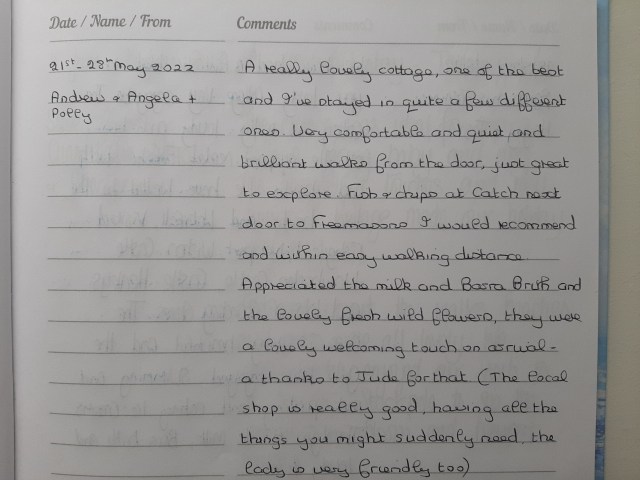 Date / Name / From
Comments
21st - 28th May 2022
Andrew & Angela +
Polly
A really lovely cottage, one of the best
and I've stayed in quite a few different
ones. Very comfortable and quiet, and
brilliant walks from the door, just great
to explore. Fish & chips at Catch next
door to Freemasons I would recommend
and within easy walking distance.
Appreciated the milk and Barra Brith and
the lovely fresh wild flowers, they were
a lovely welcoming touch on arrival -
a thanks to Jude for that (The local
shop is really good, having all the
things you might suddenly need, the
lady is very friendly too)